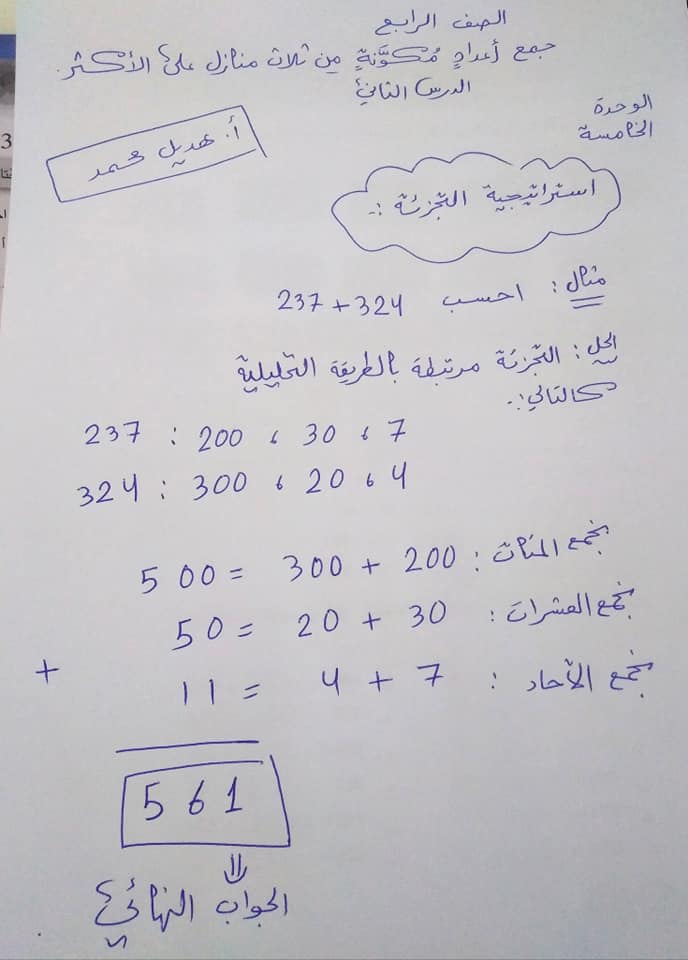 الصف الرابع
جمع أعدادٍ مُكوَّنةٍ من ثلاث منازل على الأكثر.
الدرس الثاني
الوحدة
الخامسة
أ. هديل محمد
استراتيجية التجزئة :-
مثال : احسب 324 + 237
الحل : التجزئة مرتبطة بالطريقة التحليلية
كالتالي :-
237 : 200 ، 30 ، 7
324 : 300 ، 20 ، 4
نجمع المئات : 200 + 300 = 500
نجمع العشرات : 30 + 20 = 50
نجمع الآحاد : 7 + 4 = 11
+
561
⇓
الجواب النهائي